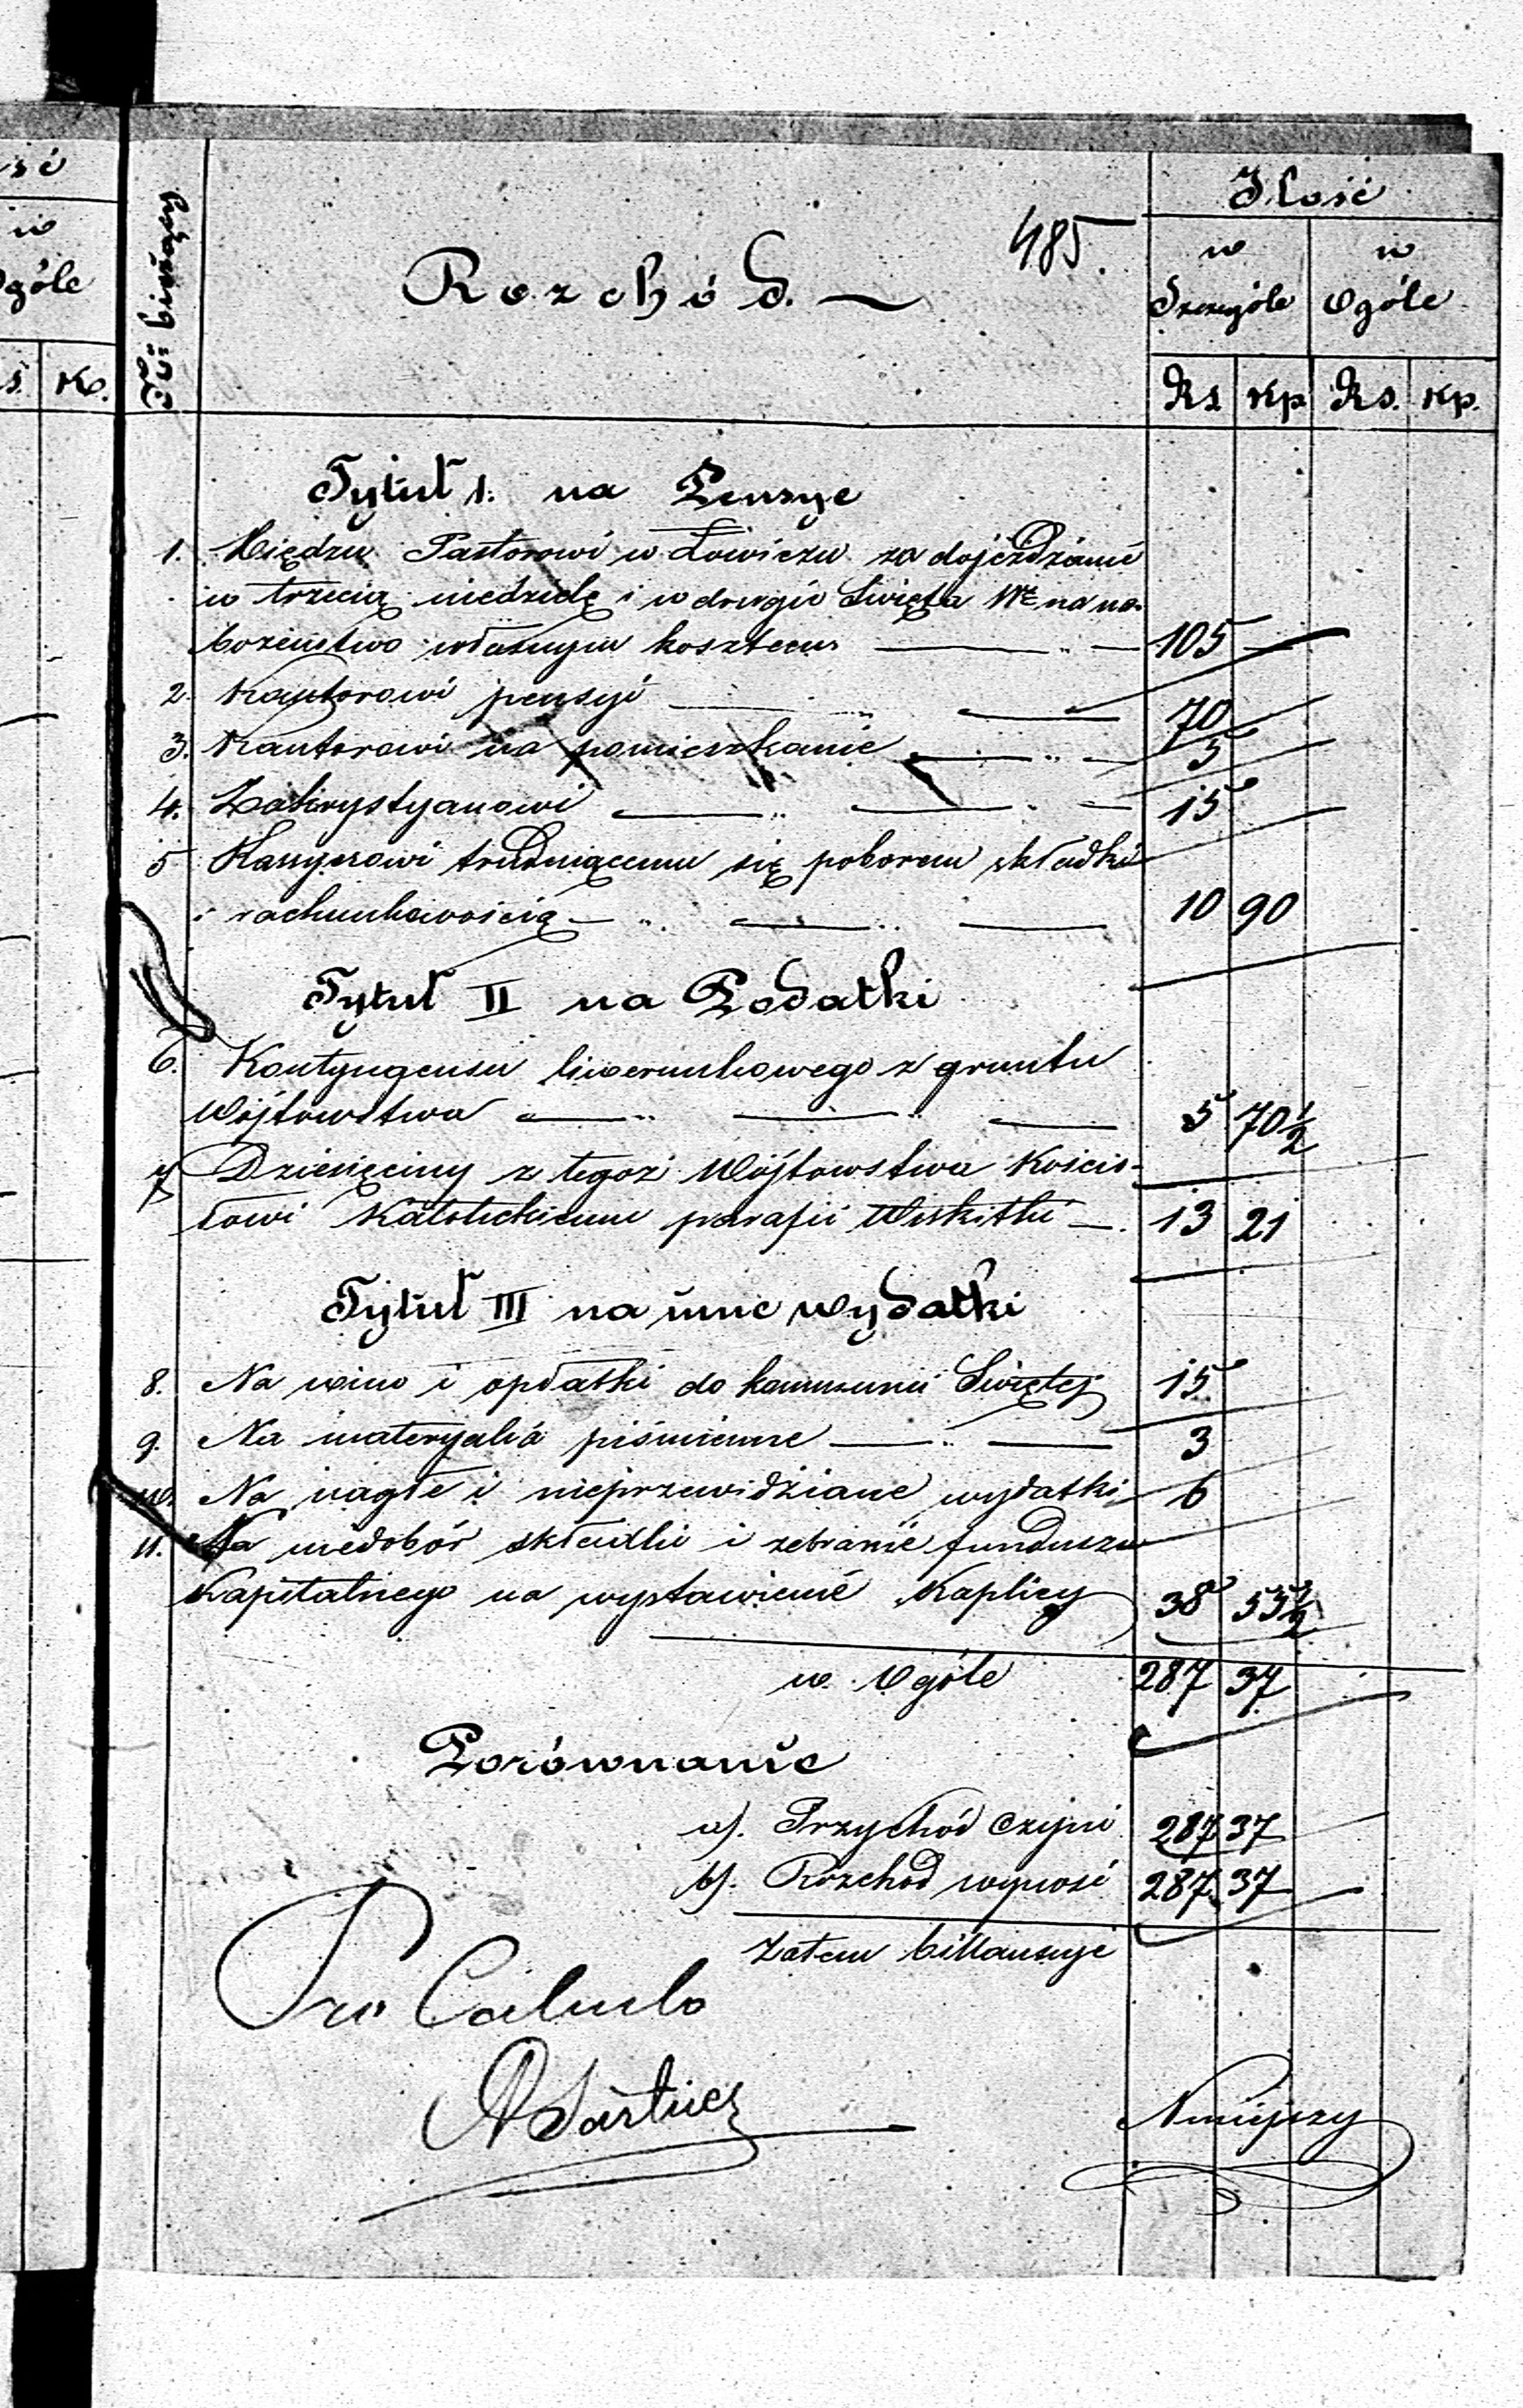 Ilość
485.
Rozchód.
w Szczególe
w Ogóle
Rs Kp Rs. Kp.
ść
w
ogóle
s. Kp.
bieżący
Tytuł 1. na Pensye
1. Księdzu Pastorowi w Łowiczu za dojeżdżanie
w trzecią niedzielę i w drugie Święta na na-
bożeństwo własnym kosztem 105
2. Kantorowi pensyi 70
3. Kantorowi na pomieszkanie 5
4. Zakrystyanowi 15
5 Kassyerowi trudniącemu się poborem składki
i rachunkowością 10 90
Tytuł II na Podatki
6. Kontyngensu liwerunkowego z gruntu
Wójtowstwa 5 70½
7 Dziesięciny z tegoż Wójtowstwa Kościo-
łowi Katolickiemu parafii Wiskitki 13 21
Tytuł III na inne wydatki
8. Na wino i opłatki do kommunii Świętej 15
9. Na materyalia piśmienne 3
10. Na nagłe i nieprzewidziane wydatki 6
11. Na niedobór składki i zebranie funduszu
Kapitalnego na wystawienie Kaplicy 38 55½
w Ogóle 287 37
Porównanie
a). Przychód czyni 287 37
b). Rozchód wynosi 287 37
Zatem billansuje
Pro Calculo
Niniejszy